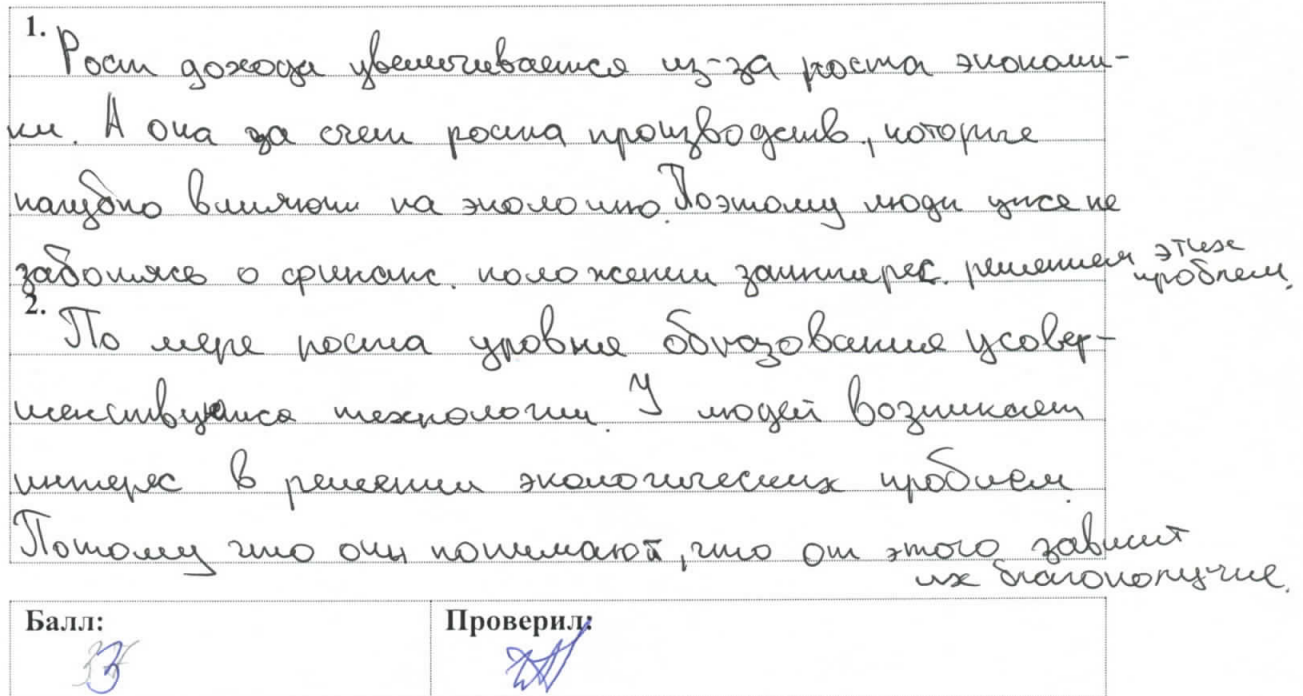 1.
Рост дохода увеличивается из-за роста экономи-
ки. А она за счет роста производств, которые
пагубно влияют на экологию. Поэтому люди уже не
заботясь о финанс. положении заинтерес. решением этих
проблем.
2.
По мере роста уровня образования усовер-
шенствуются технологии. У людей возникает
интерес в решении экологических проблем.
Потому что они понимают, что от этого зависит
их благополучие.
Балл:
3
Проверил: